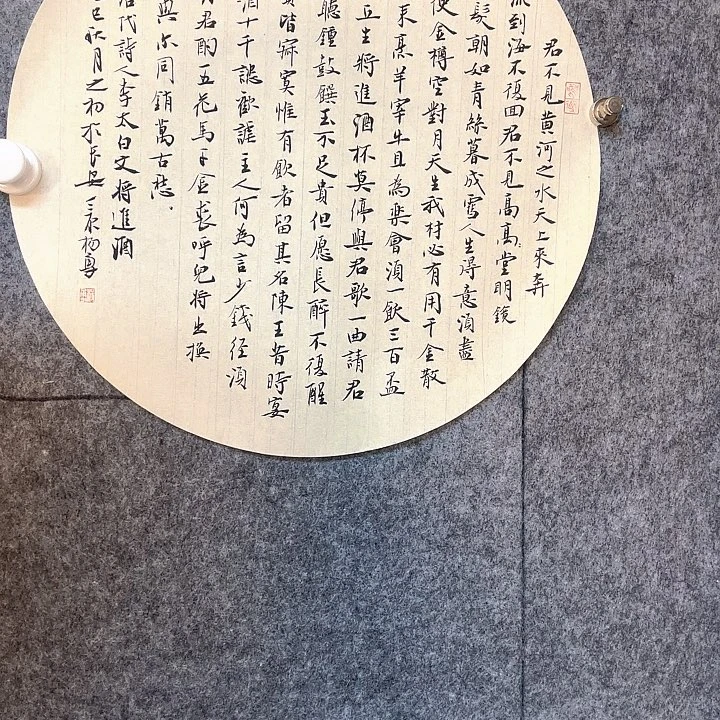 君不見黃河之水天上來奔
流到海不復回君不見高高堂明鏡
髮朝如青絲暮成雪人生得意須盡
使金樽空對月天生我材必有用千金散
來烹羊宰牛且為樂會須一飲三百盃
丘生將進酒杯莫停與君歌一曲請君
聽鐘鼓饌玉不足貴但愿長醉不復醒
賢皆寂寞惟有飲者留其名陳王昔時宴
酒十千歡謔主人何為言少錢徑須
君酌五花馬千金裘呼兒將出換
與尔同銷萬古愁
代詩人李太白文將進酒
巳秋月之初於長安